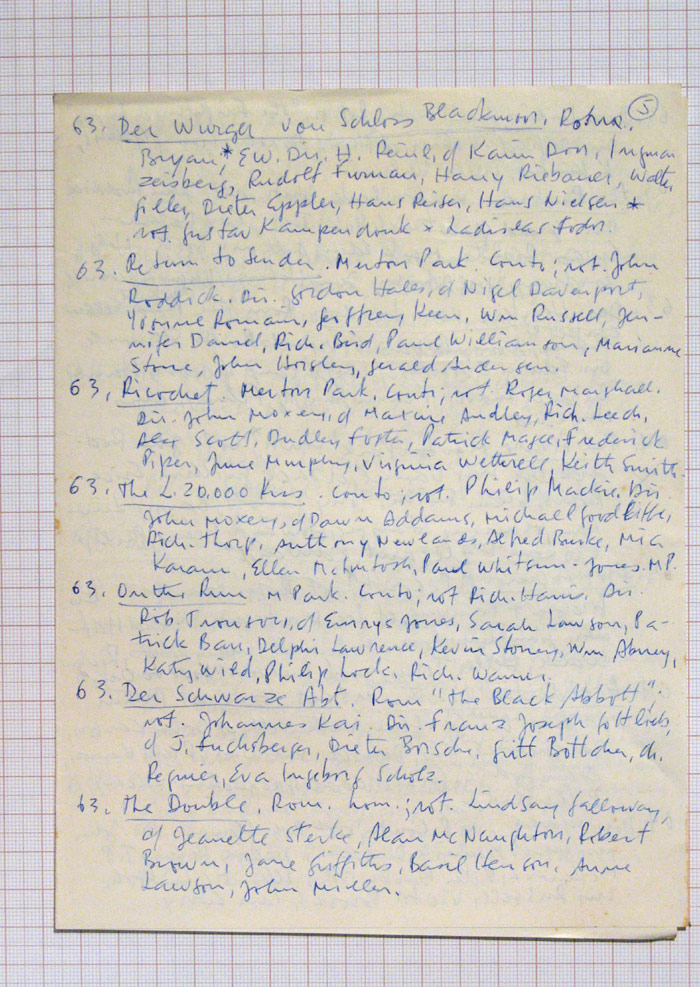 5
63. Der Wurger von Schloss Blackmoor. Roman.
Bryan,* E.W. Dir. H. Reinl, d Karin Dor, Ingmar
Zeisberg, Rudolf Furman, Harry Riebauer, Walter
Giller, Dieter Eppler, Hans Reiser, Hans Nielsen *
rot. Gustav Kampendonk * Ladislas Fodor.
63. Return to Sender. Merton Park. Conto; rot. John
Roddick. Dir. Gordon Hales, d Nigel Davenport,
Yvonne Romain, Geoffrey Keen, Wm Russell, Jen-
nifer Daniel, Rich. Bird, Paul Williamson, Marianne
Stone, John Horsley, Gerald Andersen.
63, Ricochet. Merton Park. Conto; rot Roger Marshall.
Dir. John Moxey, d Maxine Audley, Rich. Leech,
Alex Scott, Dudley Foster, Patrick Magee, Frederick
Piper, June Murphy, Virginia Wetherell, Keith Smith.
63. The £20,000 Kiss. Conto; rot. Philip Mackie. Dir.
John Moxey, d Dawn Addams, Michael Goodliffe,
Rich. Thorp, Anthony Newlands, Alfred Burke, Mia
Karam, Ellen McIntosh, Paul Whitsun-Jones. M.P.
63. On the Run M Park. Conto; rot Rich. Harris. Dir.
Rob. Tronson, d Emrys Jones, Sarah Lawson, Pa-
trick Barr, Delphi Lawrence, Kevin Stoney, Wm Abney,
Katy Wild, Philip Locke. Rich. Warner.
63. Der Schwarze Abt. Rom "The Black Abbott".
rot. Johannes Kai. Dir. Franz Joseph Gottlieb,
d J. Fuchsberger, Dieter Borsche, Gritt Böttcher, Ch.
Regnier, Eva Ingeborg Scholz.
63. The Double. Rom. hom.; rot. Lindsay Galloway,
d Jeanette Sterke, Alan McNaughton, Robert
Brown, Jane Griffiths, Basil Henson, Anne
Lawson, John Miller.